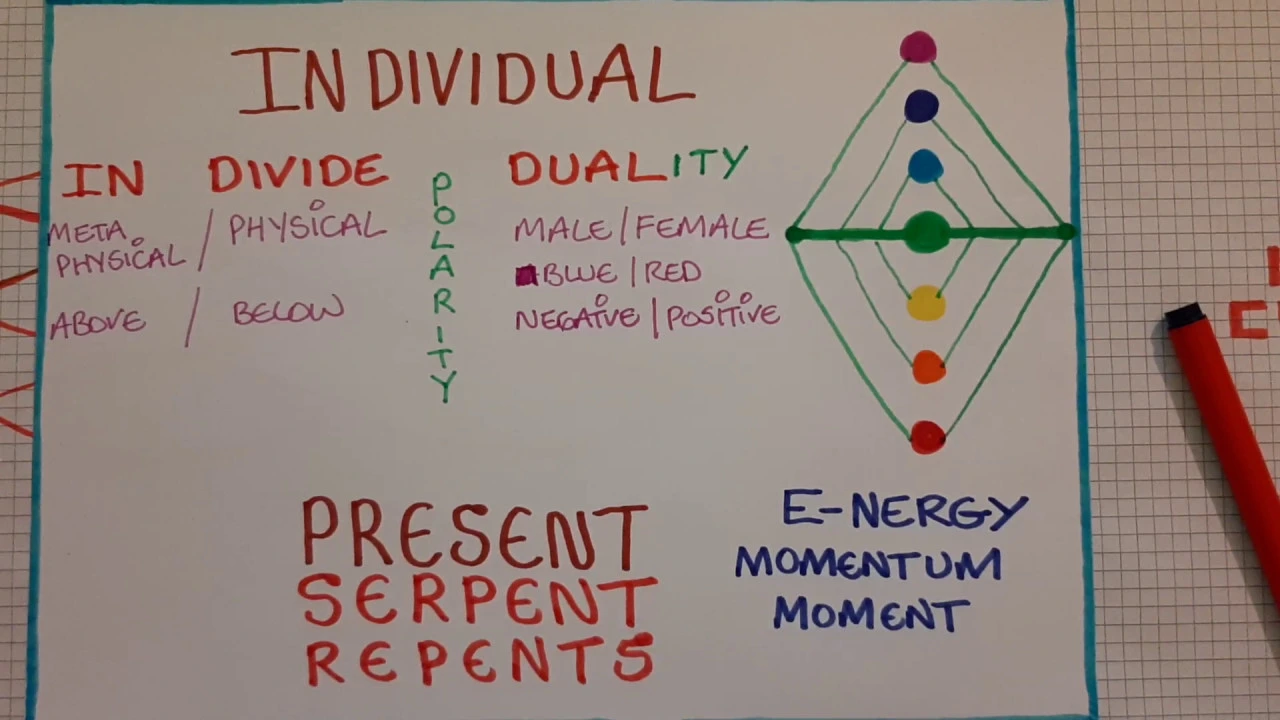 INDIVIDUAL
IN DIVIDE
DUALITY
META
PHYSICAL / PHYSICAL
ABOVE / BELOW
POLARITY
MALE/FEMALE
BLUE/RED
NEGATIVE/POSITIVE
PRESENT
SERPENT
REPENTS
E-NERGY
MOMENTUM
MOMENT